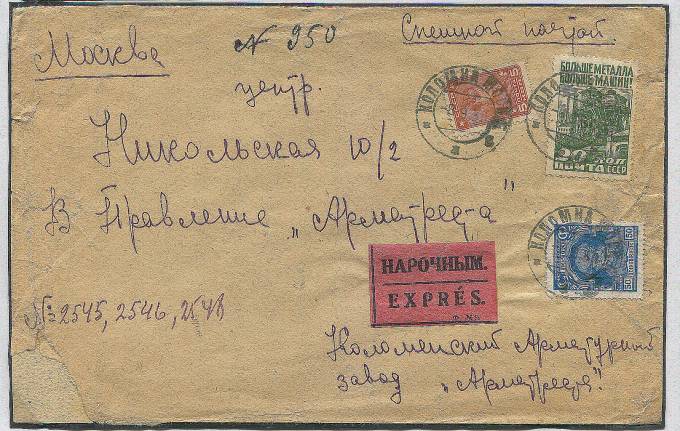 Москва
№ 950
Спешной почтой.
центр.
Никольская 10/2
В Правление „Арматреста"
КОЛОМНА
5
БОЛЬШЕ МЕТАЛЛА
БОЛЬШЕ МАШИН!
20 КОП
ПОЧТА СССР
КОЛОМНА
50 50
НАРОЧНЫМ.
EXPRÉS.
№: 2545, 2546, 2548
Коломенский Арматурный
завод „Арматреста".